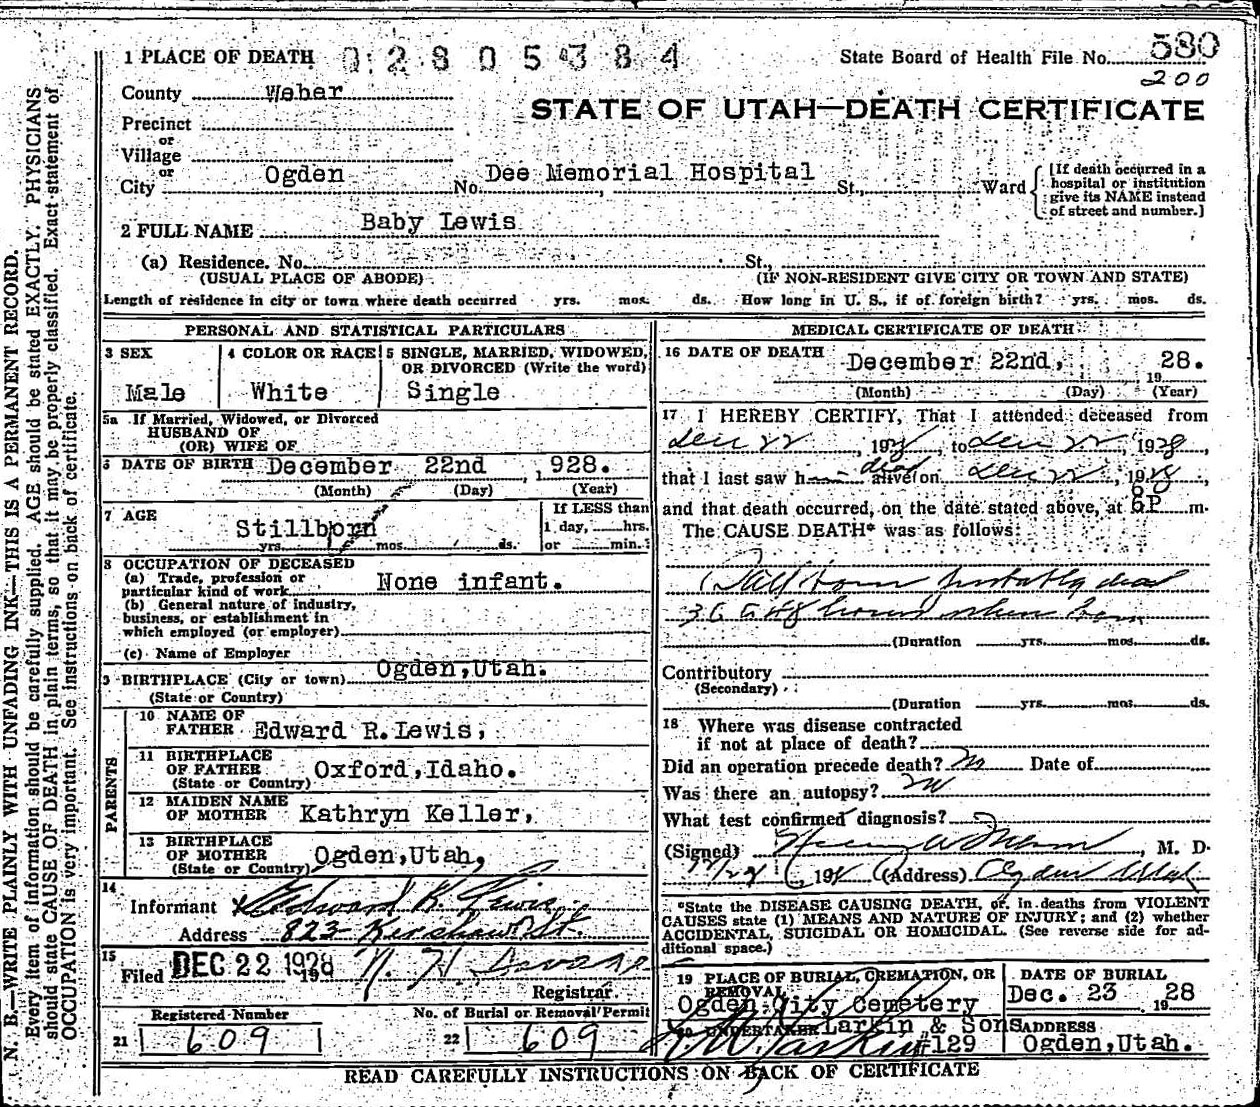 1 PLACE OF DEATH 02805384 State Board of Health File No. 580
200
County Weber
STATE OF UTAH—DEATH CERTIFICATE
Precinct
or
Village
or
City Ogden No. Dee Memorial Hospital St., Ward [If death occurred in a hospital or institution give its NAME instead of street and number.]
2 FULL NAME Baby Lewis
(a) Residence. No. St.,
(USUAL PLACE OF ABODE) (IF NON-RESIDENT GIVE CITY OR TOWN AND STATE)
Length of residence in city or town where death occurred yrs. mos. ds. How long in U. S., if of foreign birth? yrs. mos. ds.
PERSONAL AND STATISTICAL PARTICULARS
3 SEX
Male
4 COLOR OR RACE
White
5 SINGLE, MARRIED, WIDOWED,
OR DIVORCED (Write the word)
Single
5a If Married, Widowed, or Divorced
HUSBAND OF
(OR) WIFE OF
6 DATE OF BIRTH December 22nd , 1928.
(Month) (Day) (Year)
7 AGE
Stillborn
yrs. mos. ds.
If LESS than
1 day, hrs.
or min.
8 OCCUPATION OF DECEASED
(a) Trade, profession or
particular kind of work None infant.
(b) General nature of industry,
business, or establishment in
which employed (or employer)
(c) Name of Employer
9 BIRTHPLACE (City or town) Ogden, Utah.
(State or Country)
PARENTS
10 NAME OF
FATHER Edward R. Lewis,
11 BIRTHPLACE
OF FATHER Oxford, Idaho.
(State or Country)
12 MAIDEN NAME
OF MOTHER Kathryn Keller,
13 BIRTHPLACE
OF MOTHER Ogden, Utah,
(State or Country)
14
Informant x Edward R. Lewis
Address 823 Kershaw St.
15
Filed DEC 22 1928 19
Registrar
Registered Number
21 609
No. of Burial or Removal Permit
22 609
MEDICAL CERTIFICATE OF DEATH
16 DATE OF DEATH December 22nd, 1928.
(Month) (Day) (Year)
17 I HEREBY CERTIFY, That I attended deceased from
Dec 22, 1928, to Dec 22, 1928
that I last saw h dead alive on Dec 22, 1928,
and that death occurred, on the date stated above, at 6P m.
The CAUSE DEATH* was as follows:
Still born probably dead
36 to 48 hours when born
(Duration yrs. mos. ds.
Contributory
(Secondary)
(Duration yrs. mos. ds.
18 Where was disease contracted
if not at place of death?
Did an operation precede death? No Date of
Was there an autopsy? No
What test confirmed diagnosis?
(Signed) , M. D.
12/22, 192 (Address) Ogden Utah
*State the DISEASE CAUSING DEATH, or, in deaths from VIOLENT
CAUSES state (1) MEANS AND NATURE OF INJURY; and (2) whether
ACCIDENTAL, SUICIDAL OR HOMICIDAL. (See reverse side for ad-
ditional space.)
19 PLACE OF BURIAL, CREMATION, OR
REMOVAL
Ogden City Cemetery
DATE OF BURIAL
Dec. 23 1928
20 UNDERTAKER Larkin & Sons
#129
ADDRESS
Ogden, Utah.
READ CAREFULLY INSTRUCTIONS ON BACK OF CERTIFICATE
N. B.—WRITE PLAINLY WITH UNFADING INK—THIS IS A PERMANENT RECORD.
Every item of information should be carefully supplied. AGE should be stated EXACTLY. PHYSICIANS
should state CAUSE OF DEATH in plain terms, so that it may be properly classified. Exact statement of
OCCUPATION is very important. See instructions on back of certificate.